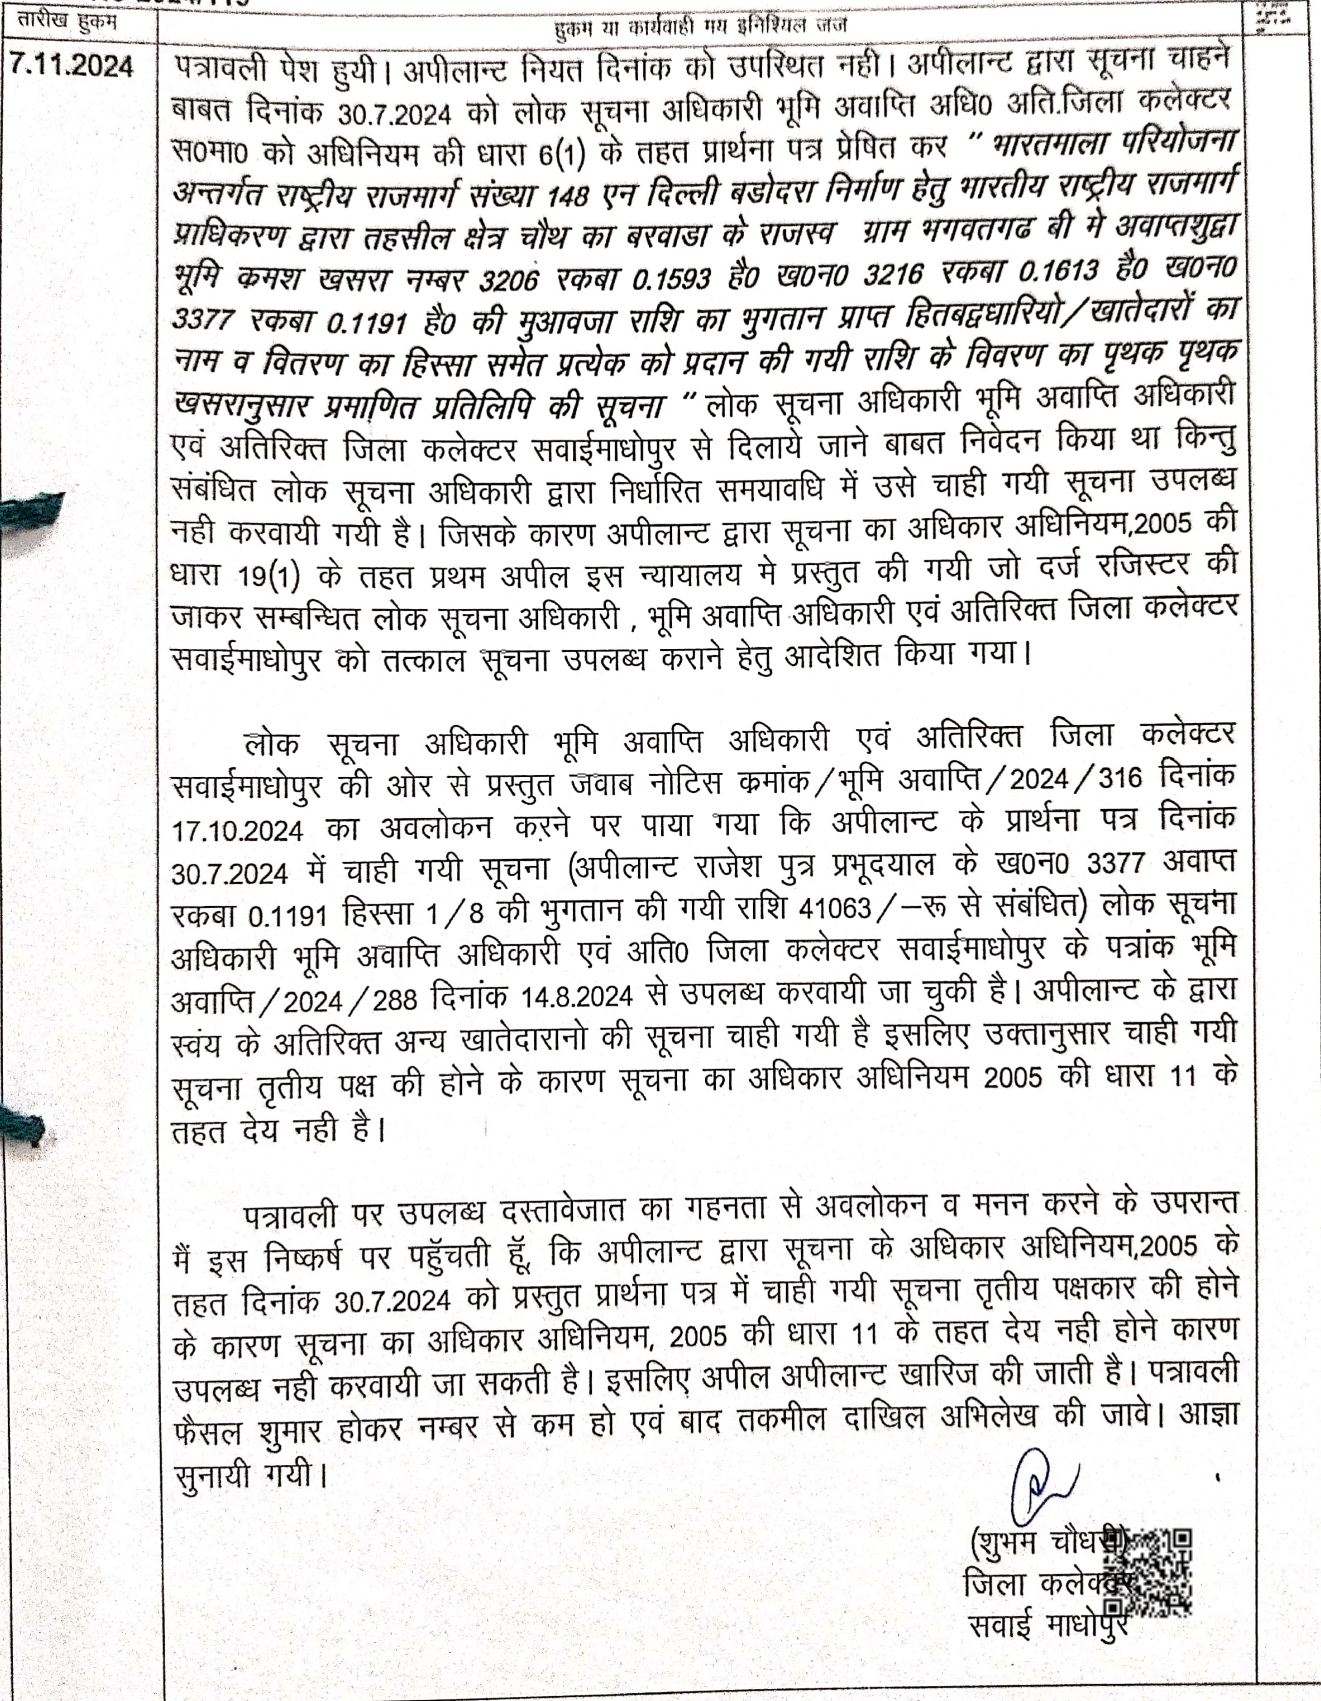 तारीख हुकम
हुकम या कार्यवाही मय इनिशियल जज
7.11.2024
पत्रावली पेश हुयी। अपीलान्ट नियत दिनांक को उपस्थित नही। अपीलान्ट द्वारा सूचना चाहने
बाबत दिनांक 30.7.2024 को लोक सूचना अधिकारी भूमि अवाप्ति अधि0 अति.जिला कलेक्टर
स0मा0 को अधिनियम की धारा 6(1) के तहत प्रार्थना पत्र प्रेषित कर " भारतमाला परियोजना
अन्तर्गत राष्ट्रीय राजमार्ग संख्या 148 एन दिल्ली बडोदरा निर्माण हेतु भारतीय राष्ट्रीय राजमार्ग
प्राधिकरण द्वारा तहसील क्षेत्र चौथ का बरवाडा के राजस्व ग्राम भगवतगढ बी मे अवाप्तशुद्वा
भूमि कमश खसरा नम्बर 3206 रकबा 0.1593 है0 ख0न0 3216 रकबा 0.1613 है0 ख0न0
3377 रकबा 0.1191 है0 की मुआवजा राशि का भुगतान प्राप्त हितबद्वधारियो/खातेदारों का
नाम व वितरण का हिस्सा समेत प्रत्येक को प्रदान की गयी राशि के विवरण का पृथक पृथक
खसरानुसार प्रमाणित प्रतिलिपि की सूचना " लोक सूचना अधिकारी भूमि अवाप्ति अधिकारी
एवं अतिरिक्त जिला कलेक्टर सवाईमाधोपुर से दिलाये जाने बाबत निवेदन किया था किन्तु
संबंधित लोक सूचना अधिकारी द्वारा निर्धारित समयावधि में उसे चाही गयी सूचना उपलब्ध
नही करवायी गयी है। जिसके कारण अपीलान्ट द्वारा सूचना का अधिकार अधिनियम,2005 की
धारा 19(1) के तहत प्रथम अपील इस न्यायालय मे प्रस्तुत की गयी जो दर्ज रजिस्टर की
जाकर सम्बन्धित लोक सूचना अधिकारी , भूमि अवाप्ति अधिकारी एवं अतिरिक्त जिला कलेक्टर
सवाईमाधोपुर को तत्काल सूचना उपलब्ध कराने हेतु आदेशित किया गया।
लोक सूचना अधिकारी भूमि अवाप्ति अधिकारी एवं अतिरिक्त जिला कलेक्टर
सवाईमाधोपुर की ओर से प्रस्तुत जवाब नोटिस कमांक/भूमि अवाप्ति/2024/316 दिनांक
17.10.2024 का अवलोकन करने पर पाया गया कि अपीलान्ट के प्रार्थना पत्र दिनांक
30.7.2024 में चाही गयी सूचना (अपीलान्ट राजेश पुत्र प्रभूदयाल के ख0न0 3377 अवाप्त
रकबा 0.1191 हिस्सा 1/8 की भुगतान की गयी राशि 41063/–रू से संबंधित) लोक सूचना
अधिकारी भूमि अवाप्ति अधिकारी एवं अति0 जिला कलेक्टर सवाईमाधोपुर के पत्रांक भूमि
अवाप्ति/2024/288 दिनांक 14.8.2024 से उपलब्ध करवायी जा चुकी है। अपीलान्ट के द्वारा
स्वंय के अतिरिक्त अन्य खातेदारानो की सूचना चाही गयी है इसलिए उक्तानुसार चाही गयी
सूचना तृतीय पक्ष की होने के कारण सूचना का अधिकार अधिनियम 2005 की धारा 11 के
तहत देय नही है।
पत्रावली पर उपलब्ध दस्तावेजात का गहनता से अवलोकन व मनन करने के उपरान्त
मैं इस निष्कर्ष पर पहुँचती हूँ, कि अपीलान्ट द्वारा सूचना के अधिकार अधिनियम,2005 के
तहत दिनांक 30.7.2024 को प्रस्तुत प्रार्थना पत्र में चाही गयी सूचना तृतीय पक्षकार की होने
के कारण सूचना का अधिकार अधिनियम, 2005 की धारा 11 के तहत देय नही होने कारण
उपलब्ध नही करवायी जा सकती है। इसलिए अपील अपीलान्ट खारिज की जाती है। पत्रावली
फैसल शुमार होकर नम्बर से कम हो एवं बाद तकमील दाखिल अभिलेख की जावे। आज्ञा
सुनायी गयी।
(शुभम चौधरी)
जिला कलेक्टर
सवाई माधोपुर